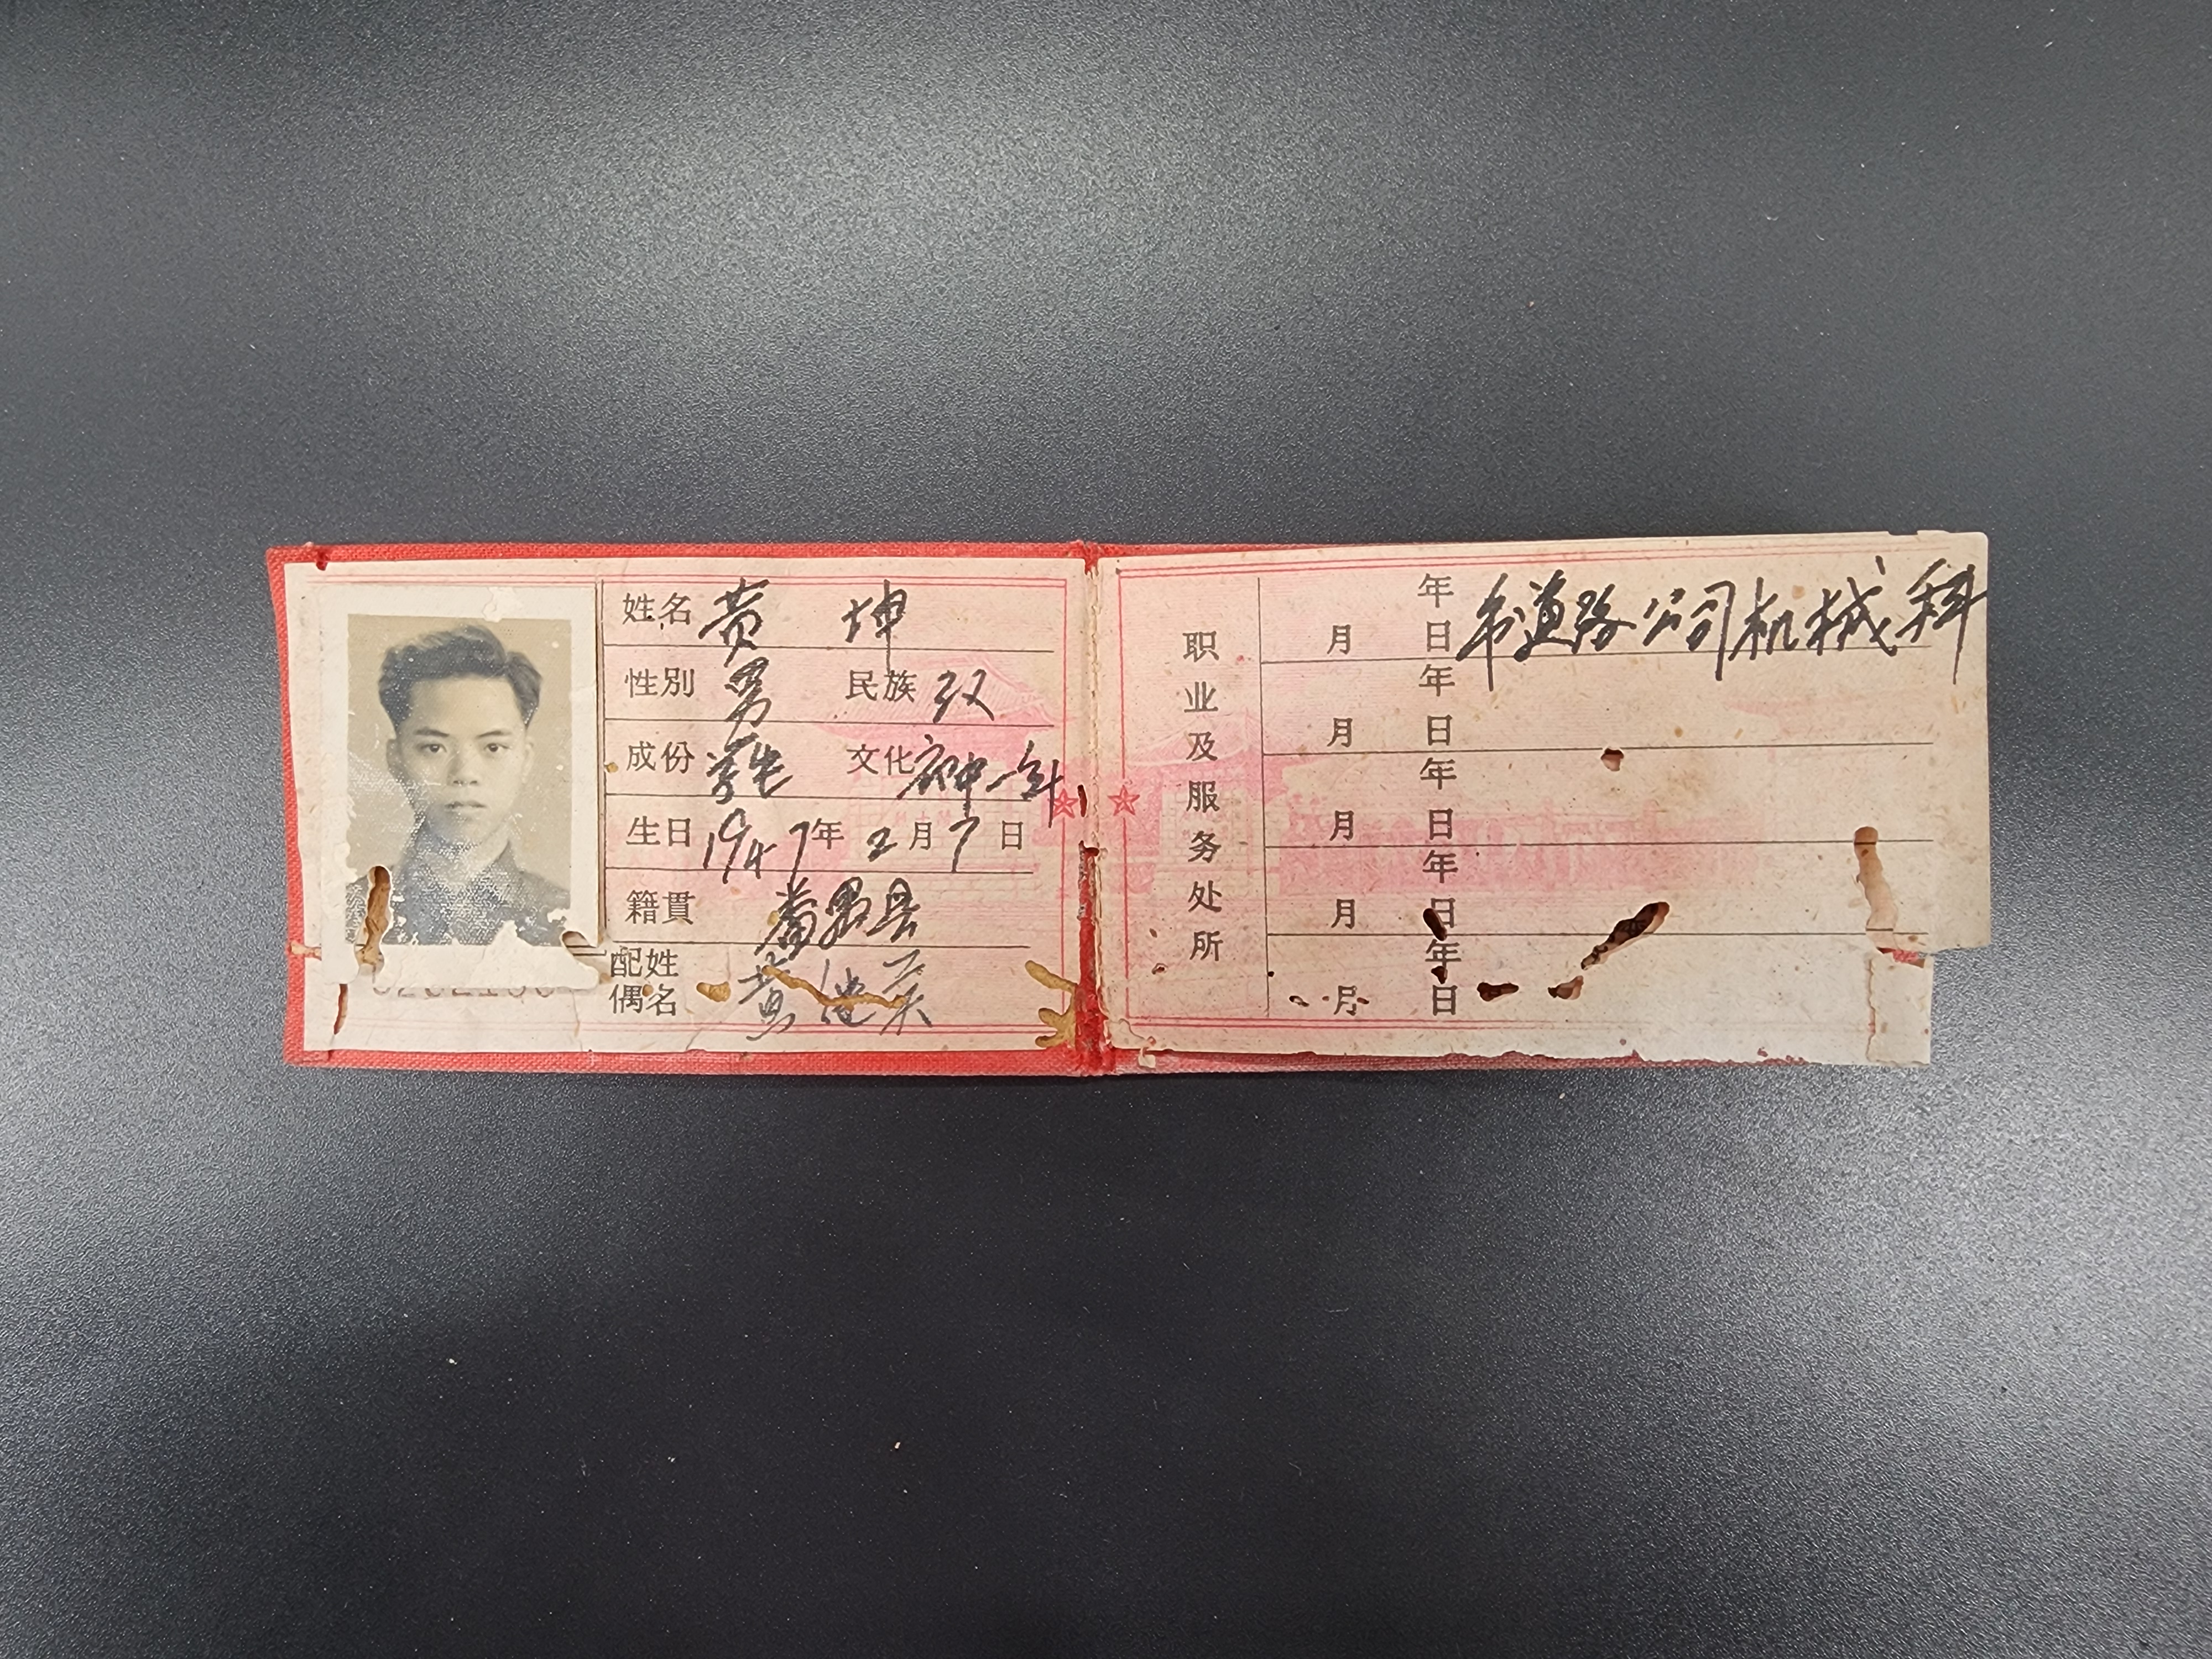 姓名 黄 坤
性別 男 民族 汉
成份 学生 文化 初中一年
生日 1947年 2月7日
籍貫 番禺县
配偶姓名 黄
职业及服务处所
年 月 日 市道路公司机械科
年 月 日
年 月 日
年 月 日
年 月 日